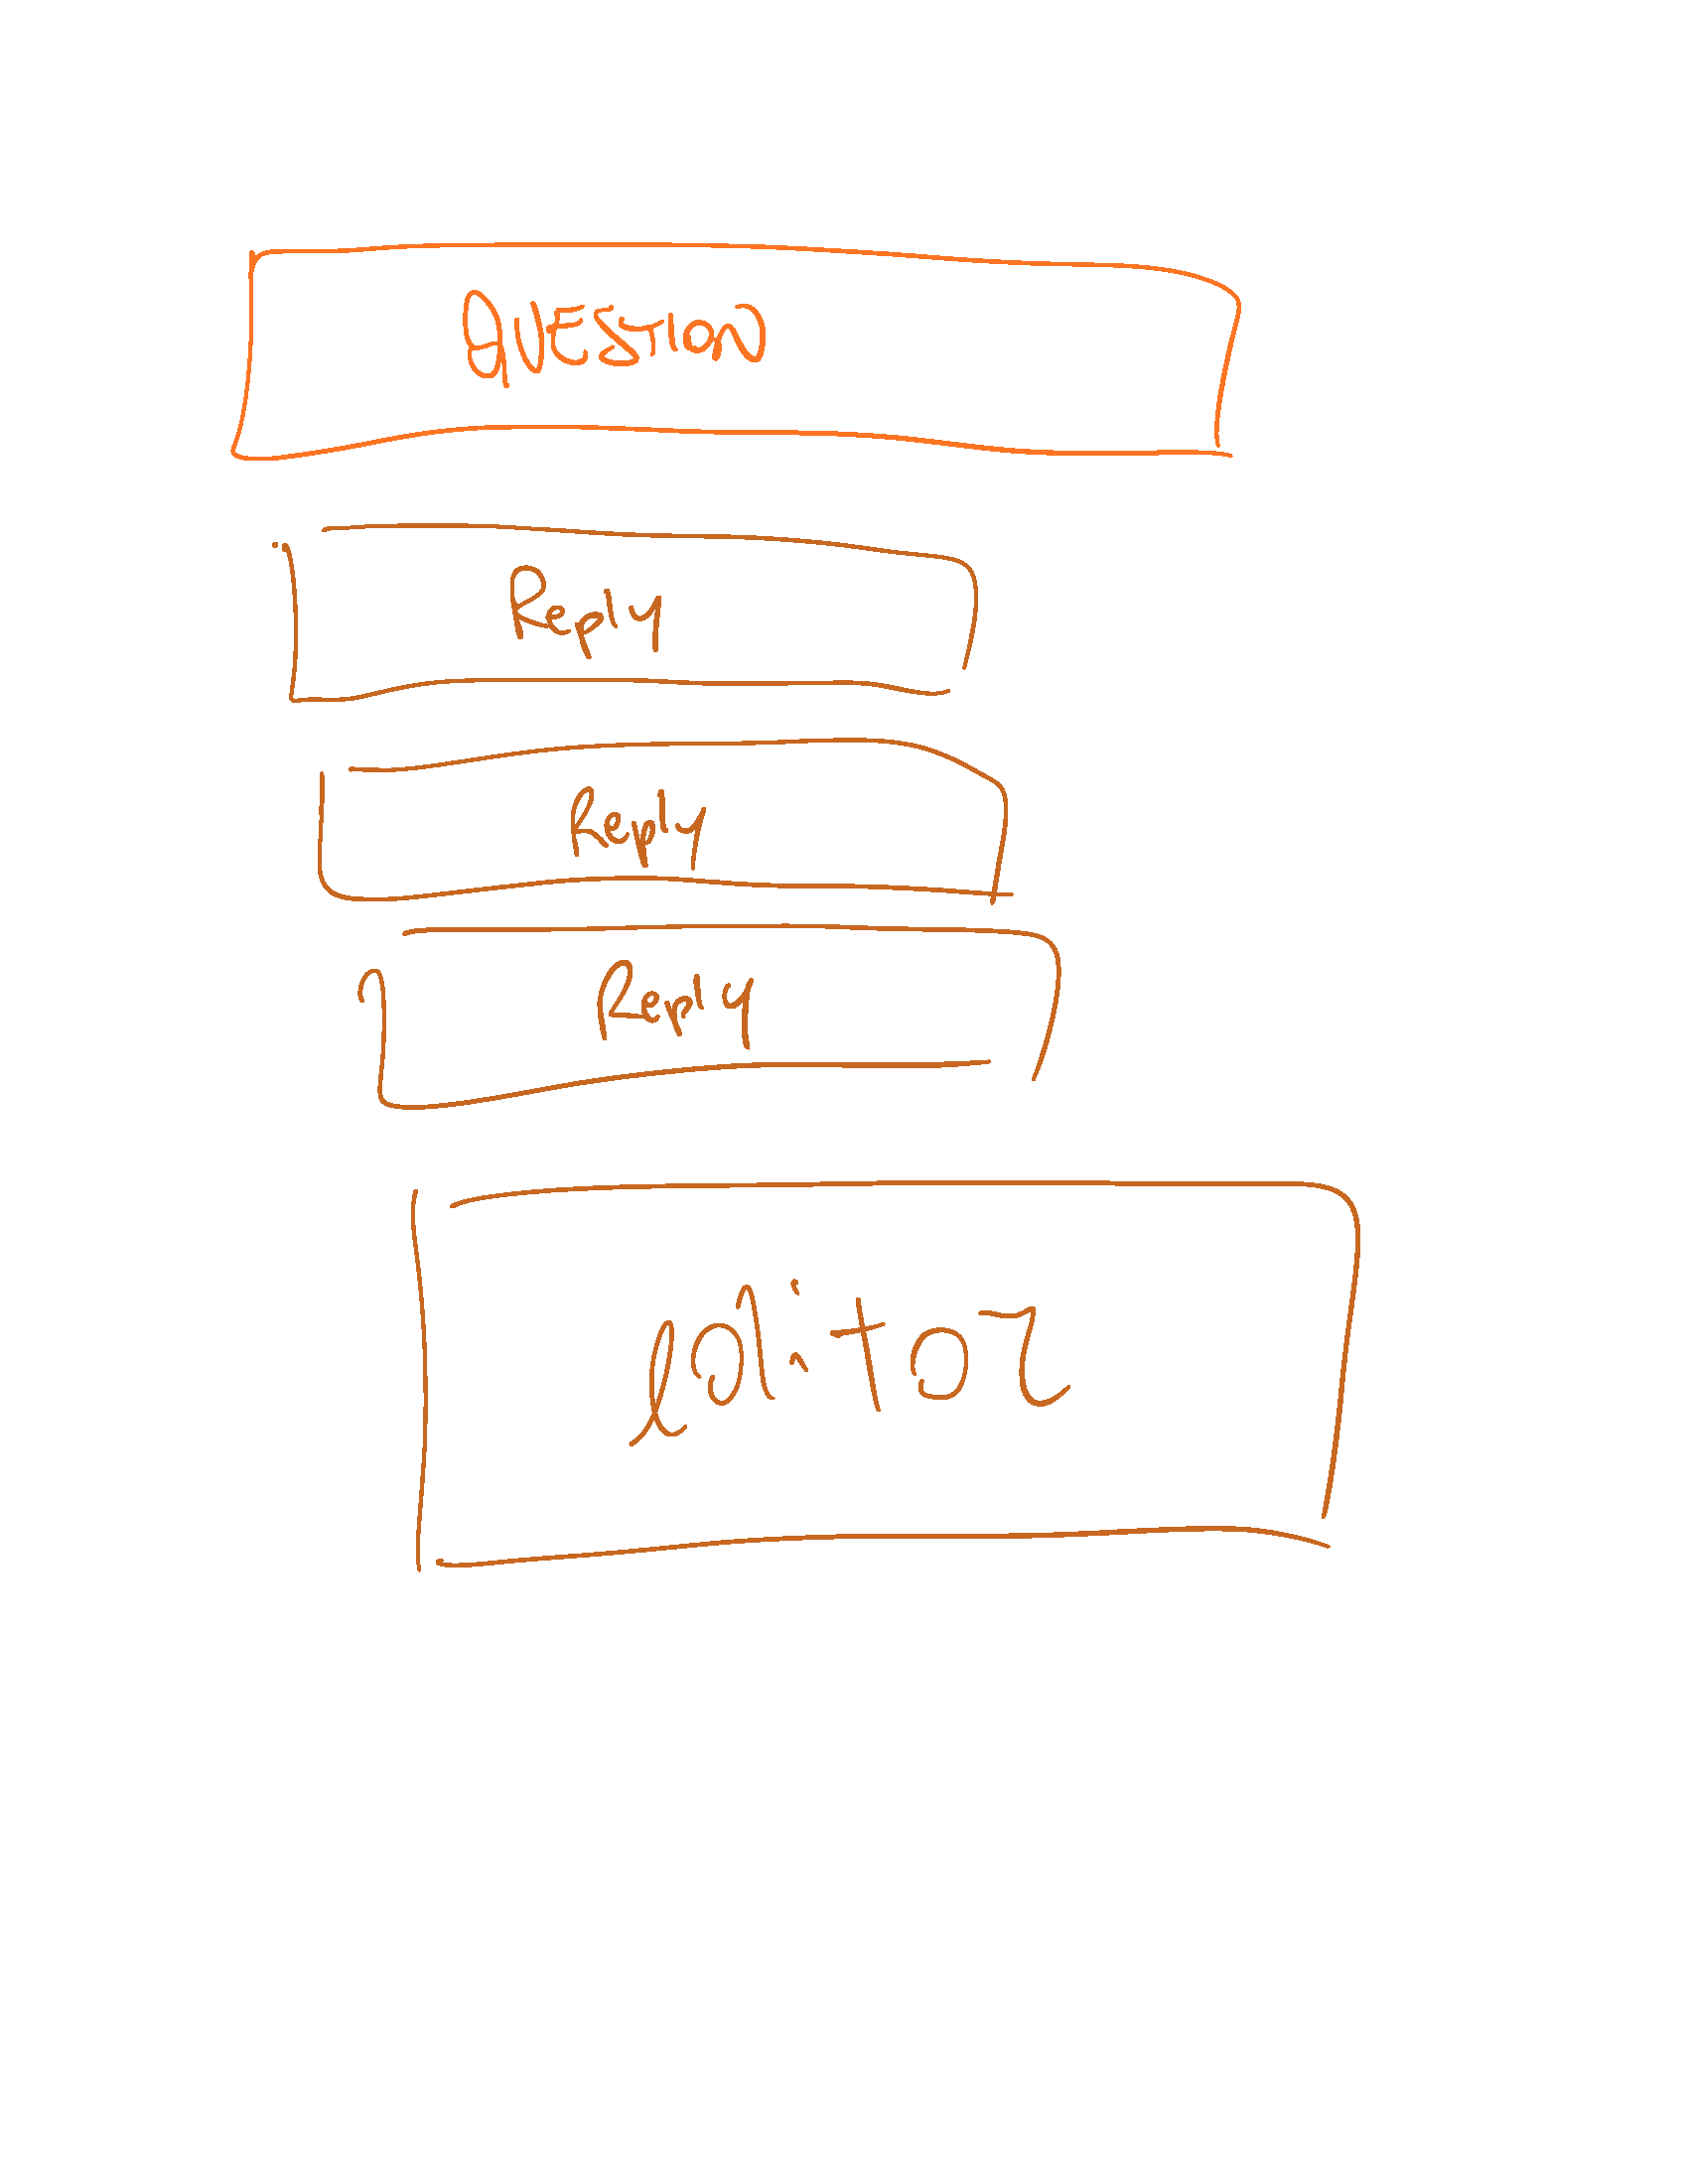 QUESTION
Reply
Reply
Reply
editor